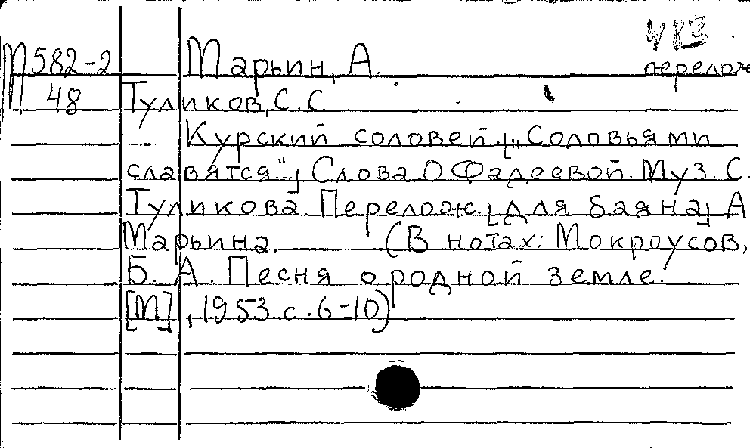 М 582-2 Марьин, А.
перелож
П 48 Туликов, С. С.
Курский соловей. [„Соловьями
славятся"] Слова О. Фадеевой. Муз. С.
Туликова. Перелож. [для баяна] А.
Марьина. (В нотах: Мокроусов,
Б. А. Песня о родной земле.
[М], 1953 с. 6-10)